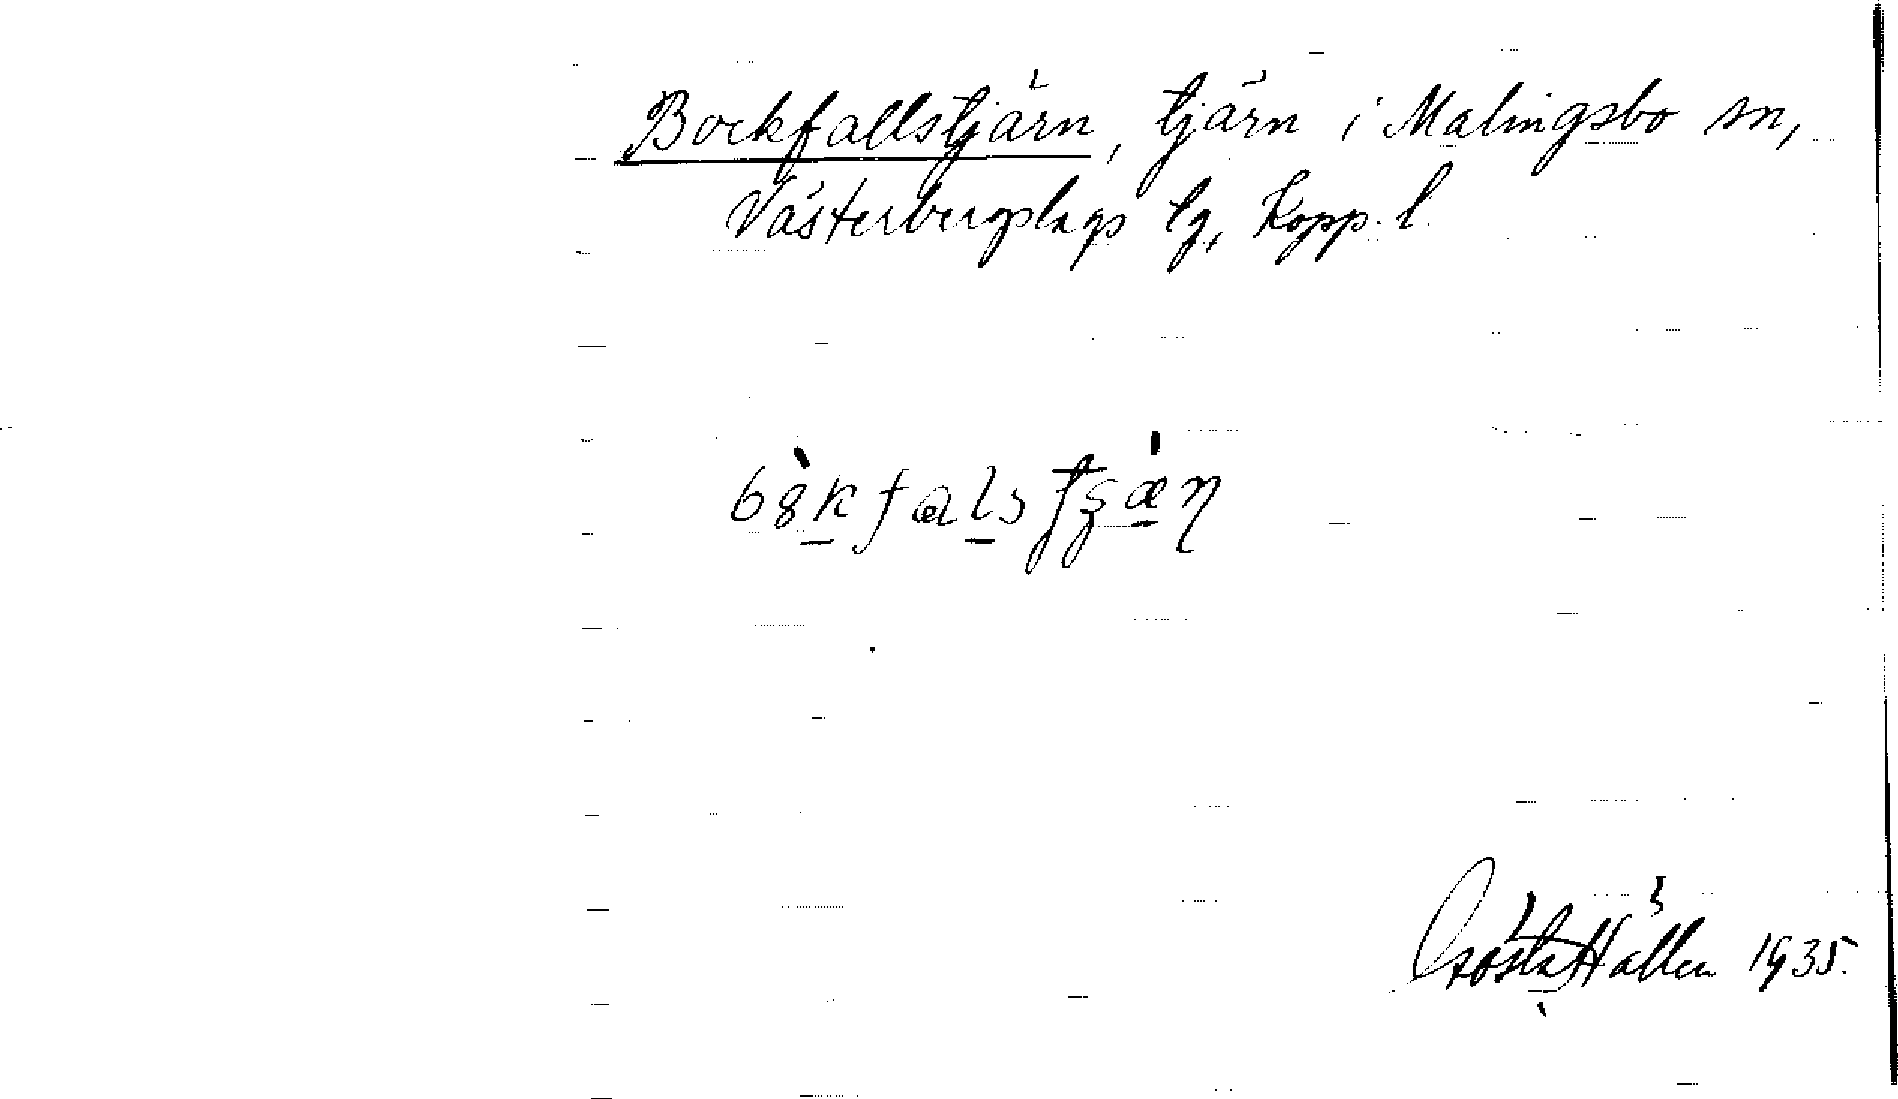 Bockfallstjärn, tjärn i Malingsbo sn,
Västerbergslags lg, Kopp. l.
Gösta Hallén 1935.